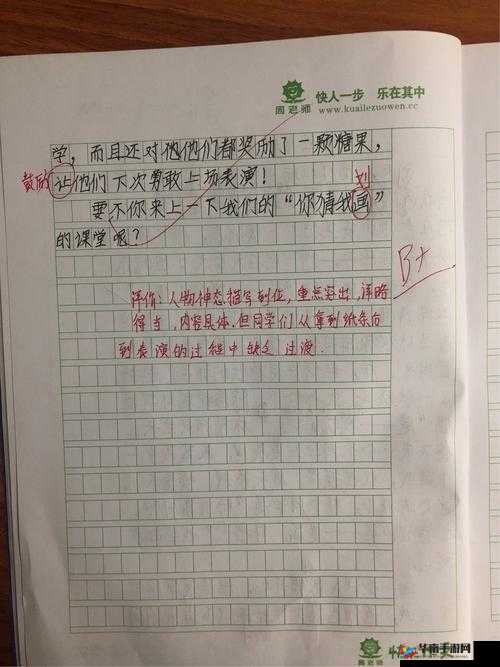 周老师 快人一步 乐在其中
www.kuailezuowen.cc
学，而且还对他他们都奖励了一颗糖果，
鼓励 让他们下次勇敢上场表演！
划
要不你来上一下我们的“你猜我画”
的课堂呢？
B+
评价：人物神态描写到位，重点突出，详略
得当，内容具体．但同学们从拿到纸条后
到表演的过程中缺乏过渡．
周老师
华南手游网